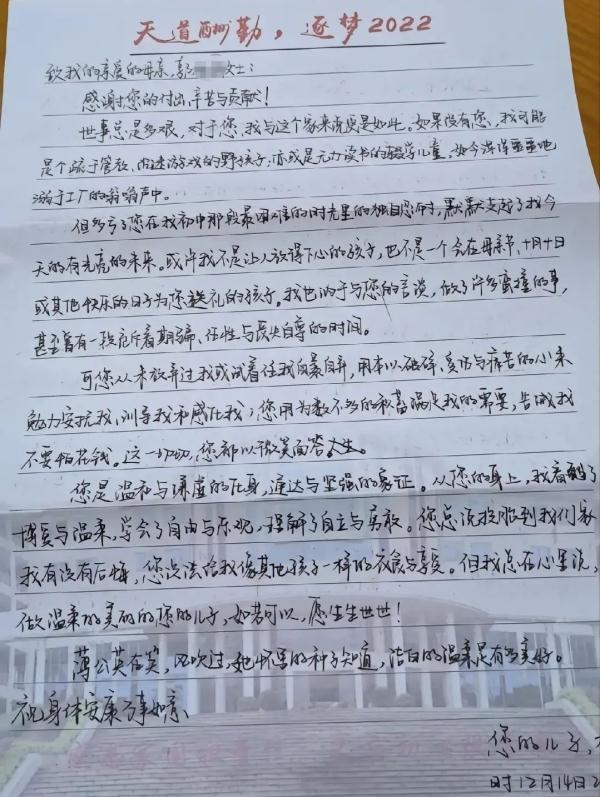 天道酬勤，逐梦2022
致我的亲爱的母亲，郭 女士：
感谢您的付出辛苦与贡献！
世事总是多艰，对于您、我与这个家来说更是如此。如果没有您，我可能
是个疏于管教、沉迷游戏的野孩子；亦或是无力读书的辍学儿童，如今浑浑噩噩地
溺于工厂的嗡嗡声中。
但多亏了您在我初中那段最困难的时光里的独自忍耐，默默支撑了我今
天的有光亮的未来。或许我不是让人放得下心的孩子，也不是一个会在母亲节、十月十日
或其他快乐的日子为您送礼的孩子。我也怯于与您的言谈，做了许多蛮撞的事，
甚至曾有一段充斥着期骗、任性与丧失自尊的时间。
可您从未放弃过我或试着任我自暴自弃，用本以破碎、受伤与痛苦的心来
勉力安抚我、训导我和感化我；您用为数不多的积蓄满足我的需要，告诫我
不要怕花钱。这一切切，您都以微笑面答人生。
您是温和与谦虚的化身，通达与坚强的象征。从您的身上，我看到了
博爱与温柔，学会了自由与乐观，理解了自立与勇敢。您总说投胎到我们家
我有没有后悔，您没法给我像其他孩子一样的衣食与享受。但我总在心里说，
做温柔的美丽的您的儿子，如若可以，愿生生世世！
蒲公英在笑，风吹过，她怀里的种子知道，洁白的温柔是有多美好。
祝身体安康万事如意、
您的儿子，
时12月14日